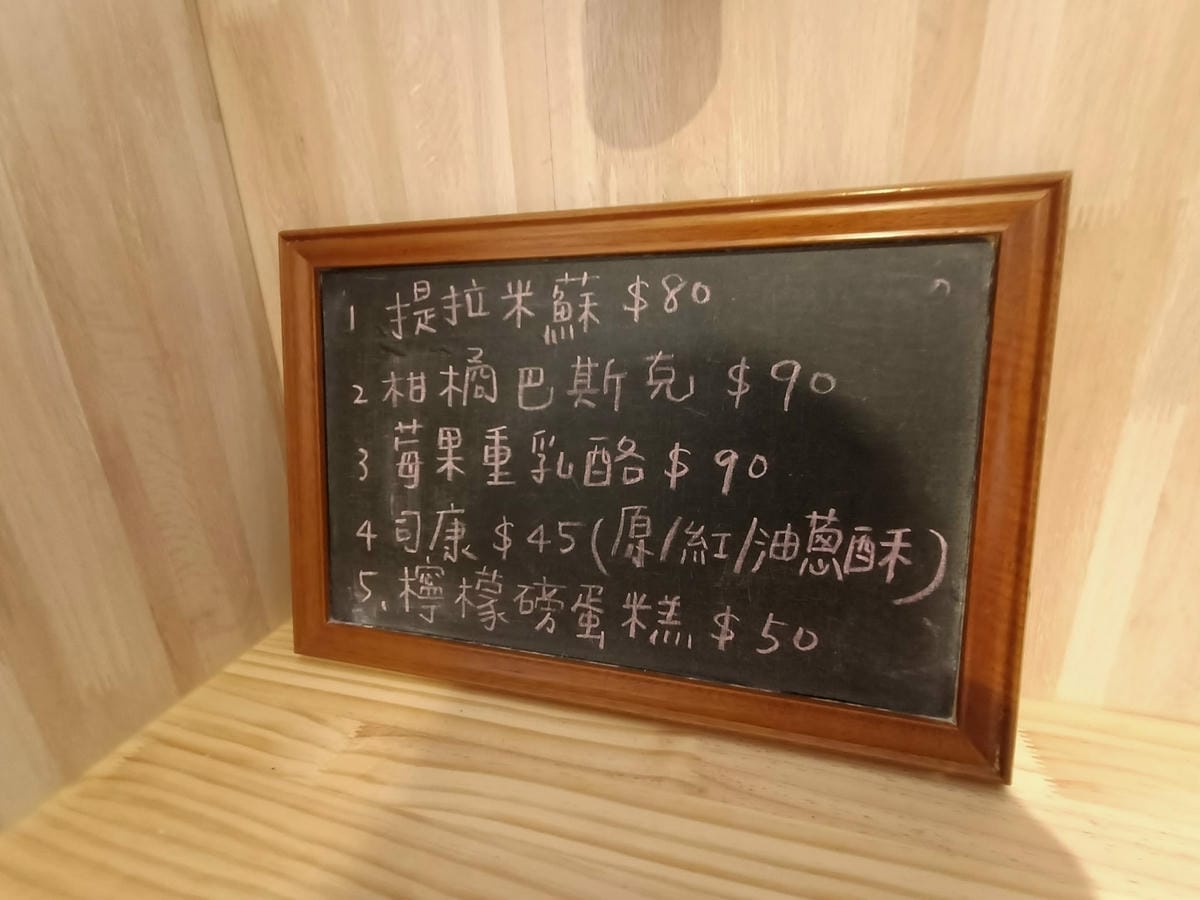 1 提拉米蘇 $80
2 柑橘巴斯克 $90
3 莓果重乳酪 $90
4 司康 $45(原/紅/油蔥酥)
5. 檸檬磅蛋糕 $50